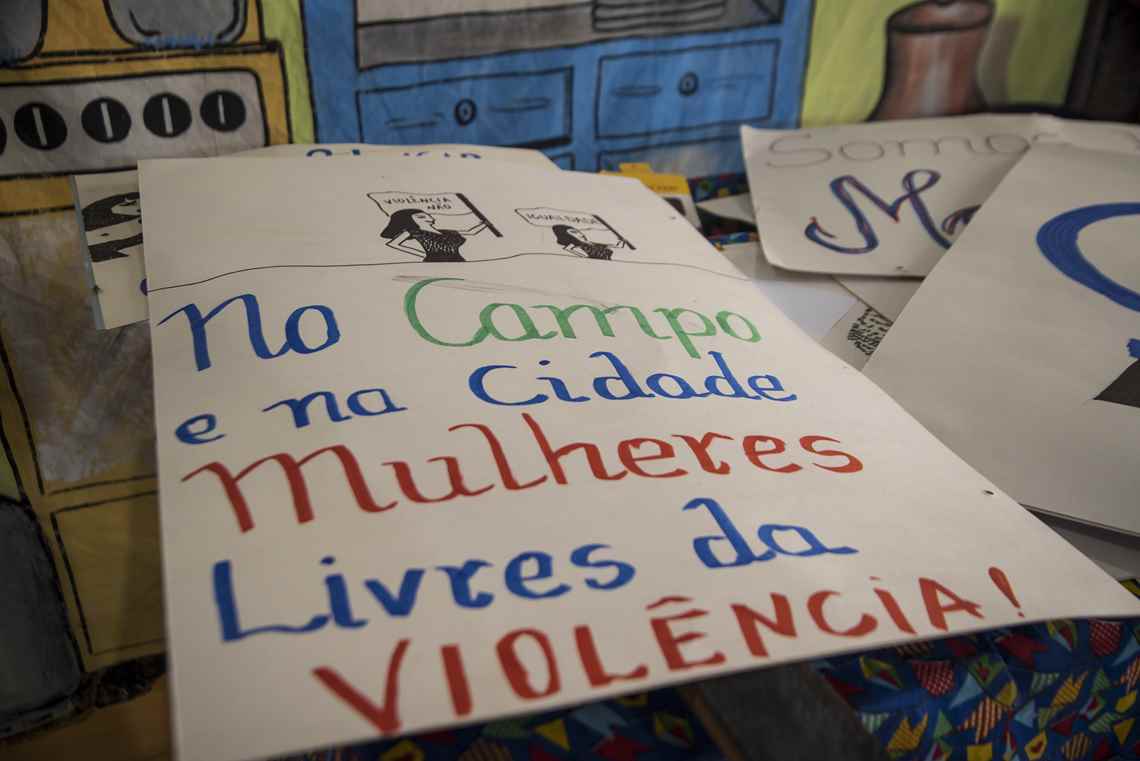 VIOLÊNCIA
NÃO
IGUALDADE
No Campo
e na Cidade
Mulheres
Livres da
VIOLÊNCIA!
Somos